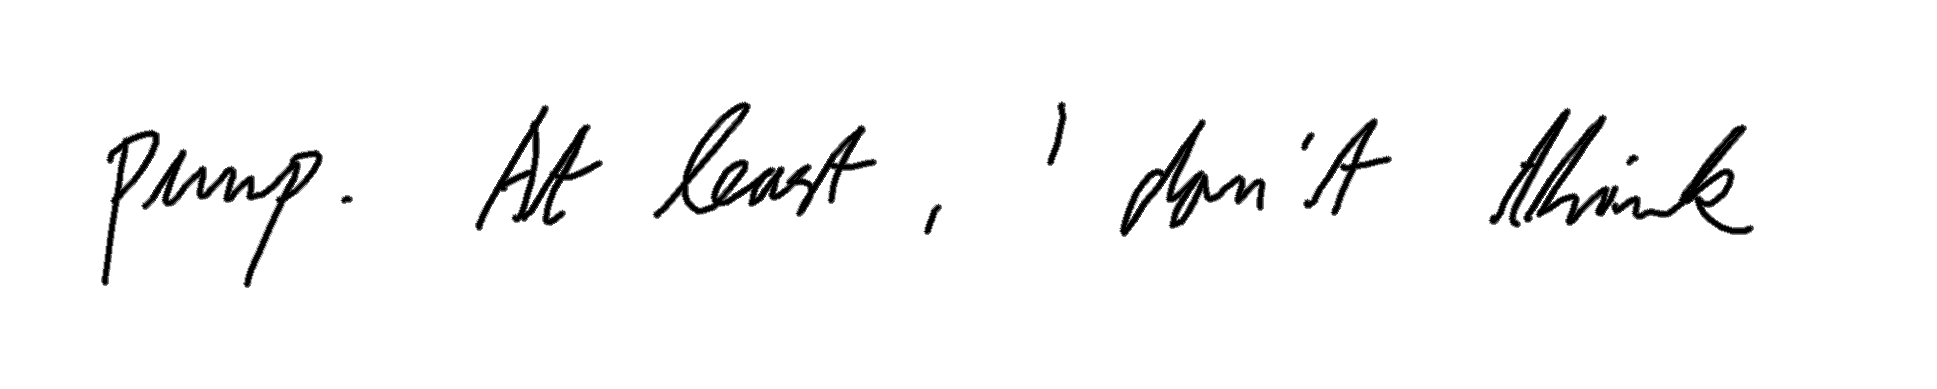 pump. At least, I don't think